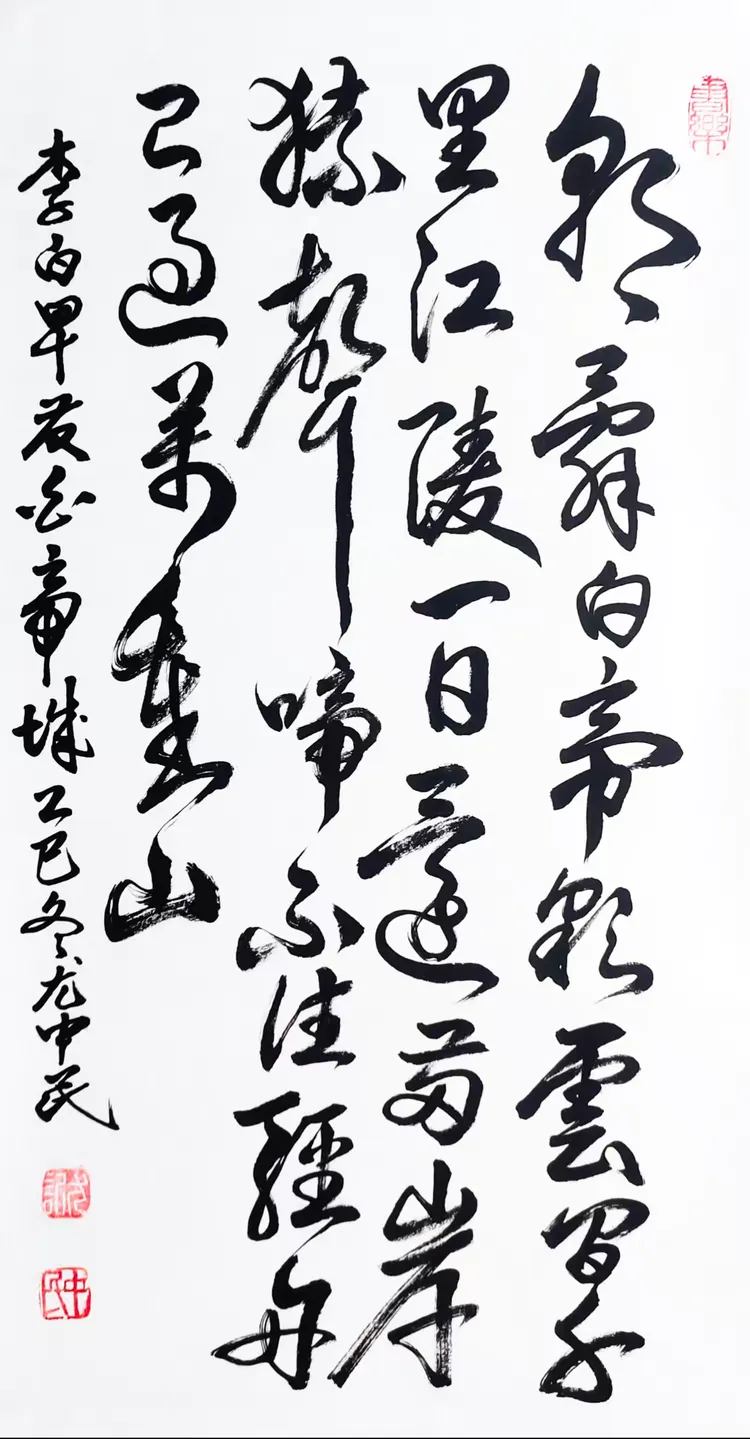 朝辭白帝彩雲間千
里江陵一日還兩岸
猿聲啼不住輕舟
已過萬重山
李白早發白帝城乙巳冬中民